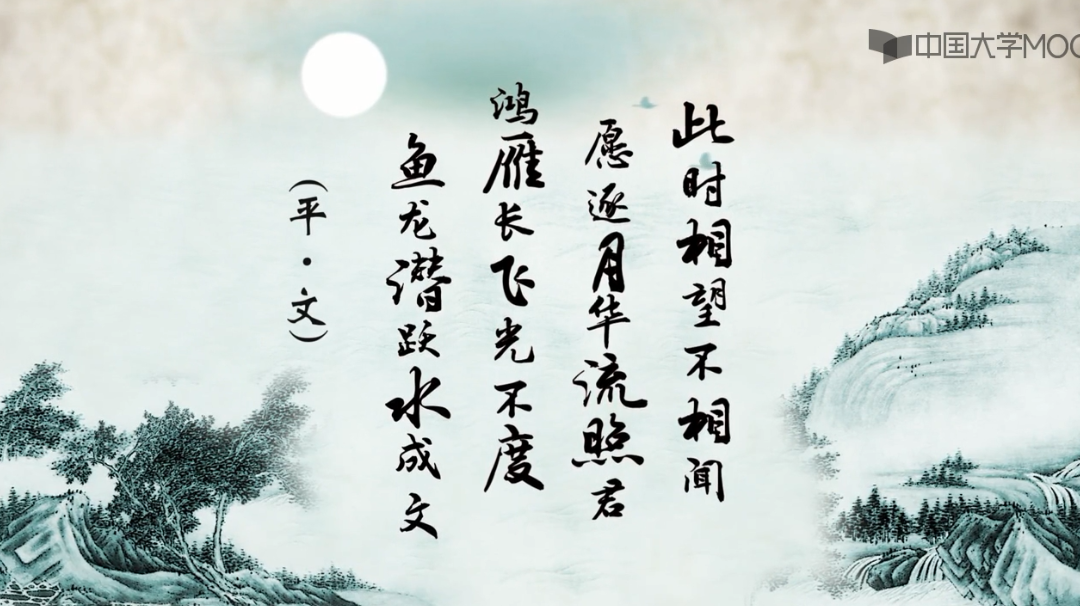 中国大学MOO
此时相望不相闻
愿逐月华流照君
鸿雁长飞光不度
鱼龙潜跃水成文
（平·文）